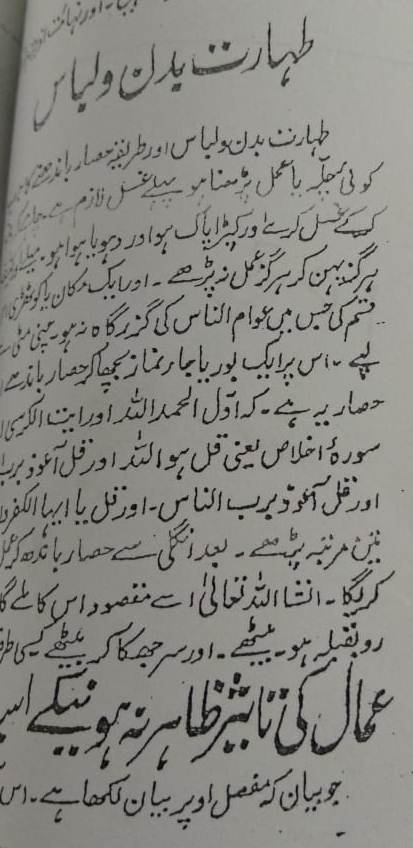 طہارت بدن و لباس
طہارت بدن ولباس اور طریقہ حصار باندھنے کا
کوئی چلّہ یا عمل پڑھنا ہو پہلے غسل لازم ہے
کرکے غسل کرے اور کپڑا پاک ہو اور دہویا ہوا ہو۔ میلا
ہرگز پہن کر ہرگز عمل نہ پڑھے۔ اور ایک مکان یا کوٹھڑی
قسم کی جس میں عوام الناس کی گزرگاہ نہ ہو۔ چپنی مٹی سے
لپے۔ اس پر ایک بوریا یا جا نماز بچھا کر حصار باندھے
حصار یہ ہے۔ کہ اوّل الحمد اللہ اور ایت الکرسی
سورۂ اخلاص یعنی قل ہو اللہ اور قل آعوذ برب
اور قل آعوذ برب الناس۔ اور قل یا ایہا الکفرو
تین مرتبہ پڑھے۔ بعد انگلی سے حصار باندھ کر عمل
کریگا۔ انشا اللہ تعالیٰ اسے مقصود اس کا ملے گا
رو بقبلہ ہو۔ بیٹھے۔ اور سر جھکا کر بیٹھے کسی طرف
عمال کی تاثیر ظاہر نہ ہونیکے اسب
جو بیان کہ مفصل اوپر بیان لکھا ہے۔ اس